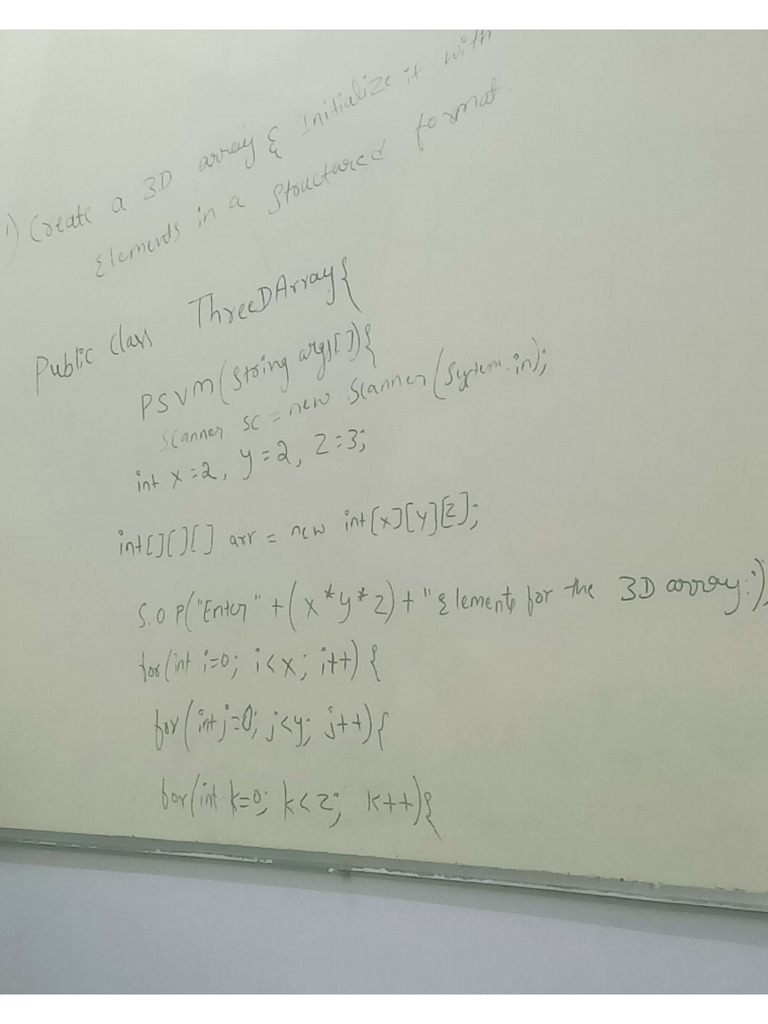 1) Create a 3D array & initialize it with
Elements in a structured format
Public class ThreeDArray{
PSVM(String args[]){
Scanner sc = new Scanner(System.in);
int x=2, y=2, z=3;
int[][][] arr = new int[x][y][z];
S.O.P("Enter" + (x*y*z) + "Elements for the 3D array:");
for(int i=0; i<x; i++) {
for(int j=0; j<y; j++){
for(int k=0; k<z; k++){